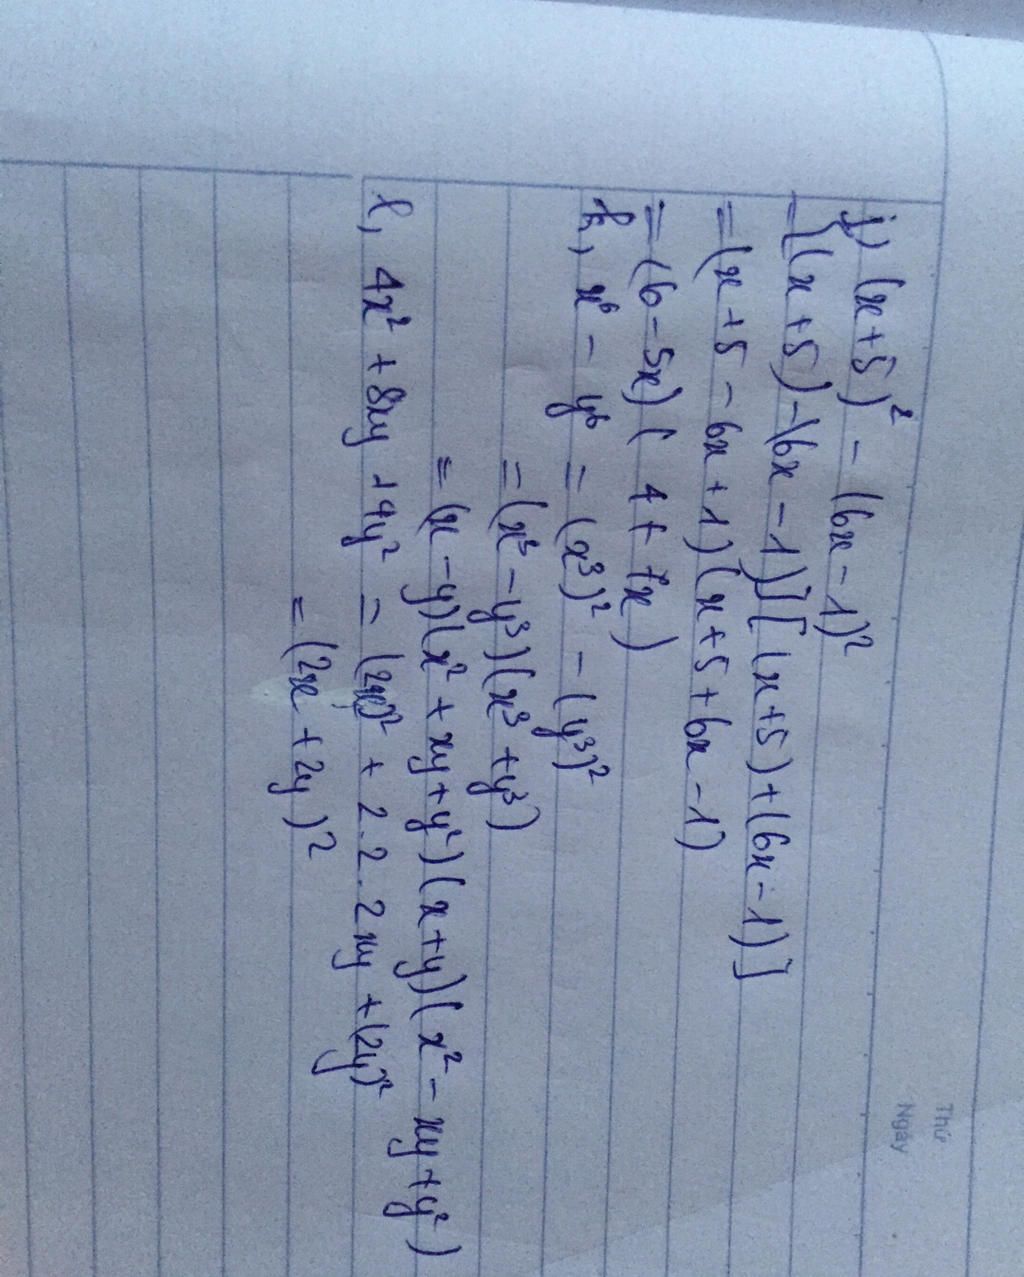 Thứ
Ngày
j, (x+5)² - (6x-1)²
= [(x+5)-(6x-1)][(x+5)+(6x-1)]
= (x+5-6x+1)(x+5+6x-1)
= (6-5x)(4+7x)
k, x⁶ - y⁶ = (x³)² - (y³)²
= (x³-y³)(x³+y³)
= (x-y)(x²+xy+y²)(x+y)(x²-xy+y²)
l, 4x² + 8xy + 4y² = (2x)² + 2.2.2xy + (2y)²
= (2x+2y)²